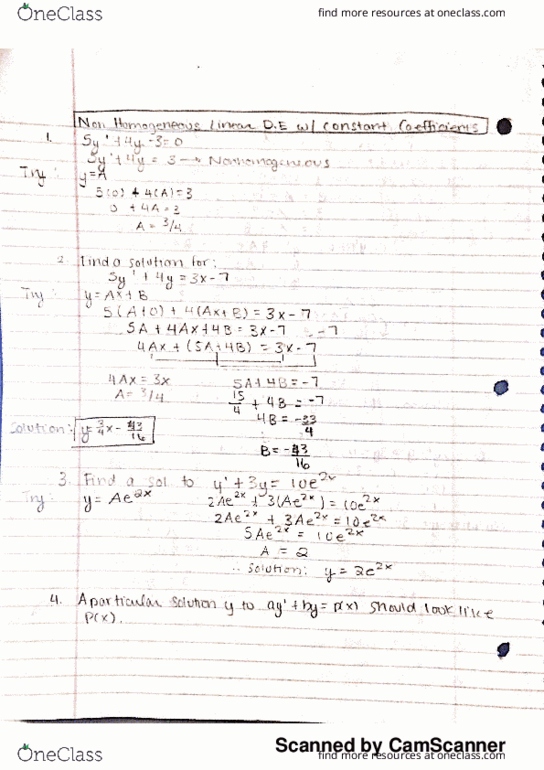 OneClass
find more resources at oneclass.com
Non Homogeneous Linear D.E w/ constant Coefficients
1. 5y' + 4y - 3 = 0
5y' + 4y = 3 → Nonhomogeneous
Try: y = A
5(0) + 4(A) = 3
0 + 4A = 3
A = 3/4
2. Find a solution for:
5y' + 4y = 3x - 7
Try: y = Ax + B
5(A+0) + 4(Ax+B) = 3x - 7
5A + 4Ax + 4B = 3x - 7 - 7
4Ax + (5A+4B) = 3x - 7
4Ax = 3x 5A + 4B = -7
A = 3/4 15/4 + 4B = -7
4B = -33/4
Solution: y = 3/4x - 43/16
B = -43/16
3. Find a sol to y' + 3y = 10e^2x
Try: y = Ae^2x 2Ae^2x + 3(Ae^2x) = 10e^2x
2Ae^2x + 3Ae^2x = 10e^2x
5Ae^2x = 10e^2x
A = 2
∴ solution: y = 2e^2x
4. A particular solution y to ay' + by = p(x) should look like
P(x).
Scanned by CamScanner
OneClass
find more resources at oneclass.com